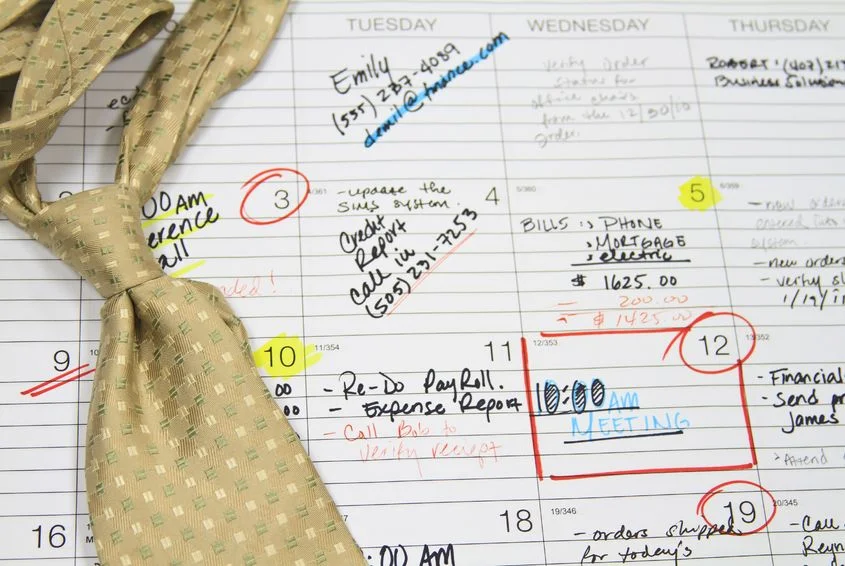 TUESDAY
WEDNESDAY
THURSDAY
Emily
(555) 237-4089
demil@finance.com
verify order
status for
office chairs
from the 12/30/10
order.
ROBERT (407) 217
Business Solution
3
00 AM
erence
all
nded!
4/361
4
- update the
SIMS system.
Credit
Report
Call in
(505) 231-7253
5/360
5
BILLS :> PHONE
> MORTGAGE
> electric
$ 1625.00
- 200.00
= $ 1425.00
6/359
- new orders
entered into
system.
- new orders
- verify s
1/19/11
9
10
10
00
00
11/354
11
- Re-Do PayRoll.
- Expense Report
- Call Bob to
verify reciept
12/353
12
10:00 AM
MEETING
13/352
- Financial
- Send pr
James
Attend
16
18
:00 AM
19/346
19
- orders shipped
for today's
20/345
- Call
Reyn